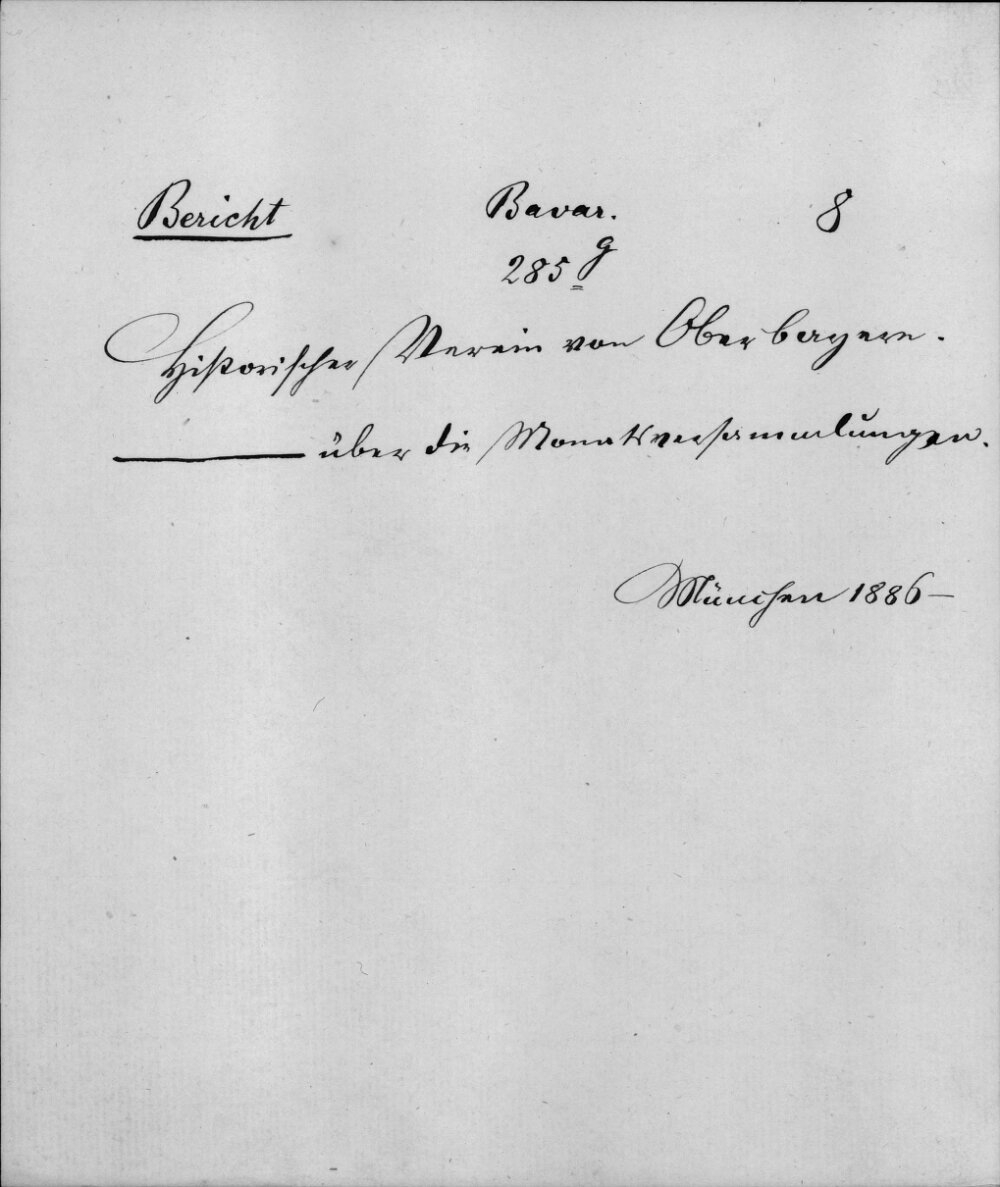 Bericht Bavar. 8
285 g
Historischer Verein von Oberbayern.
——— über die Monatsversammlungen.
München 1886 –